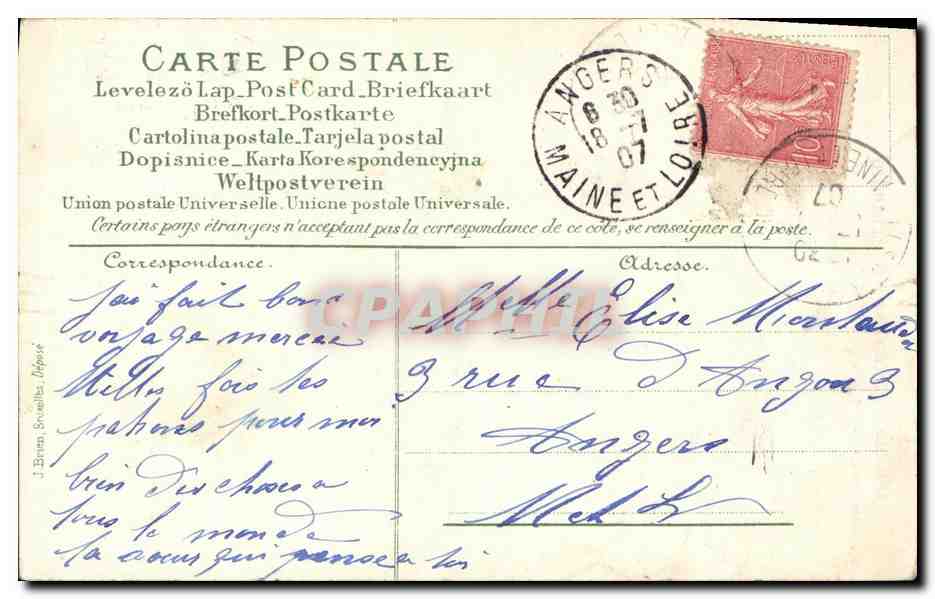 CARTE POSTALE
Levelezö Lap_Post Card_Briefkaart
Brefkort_Postkarte
Cartolina postale_Tarjela postal
Dopisnice_Karta Korespondencyjna
Weltpostverein
Union postale Universelle. Unione postale Universale.
Certains pays étrangers n'acceptant pas la correspondance de ce côté, se renseigner à la poste.
ANGERS
6 30
18 - 7
07
MAINE ET LOIRE
10
07
Correspondance.
Adresse.
J. Brien, Bruxelles, Déposé
CPAPHIL
j'ai fait bon
voyage mercie
fois les
pour moi
bien des choses a
tous le monde
ta qui pense a toi
Melle Elise
3 rue d'Angou 3
Angers
M et L